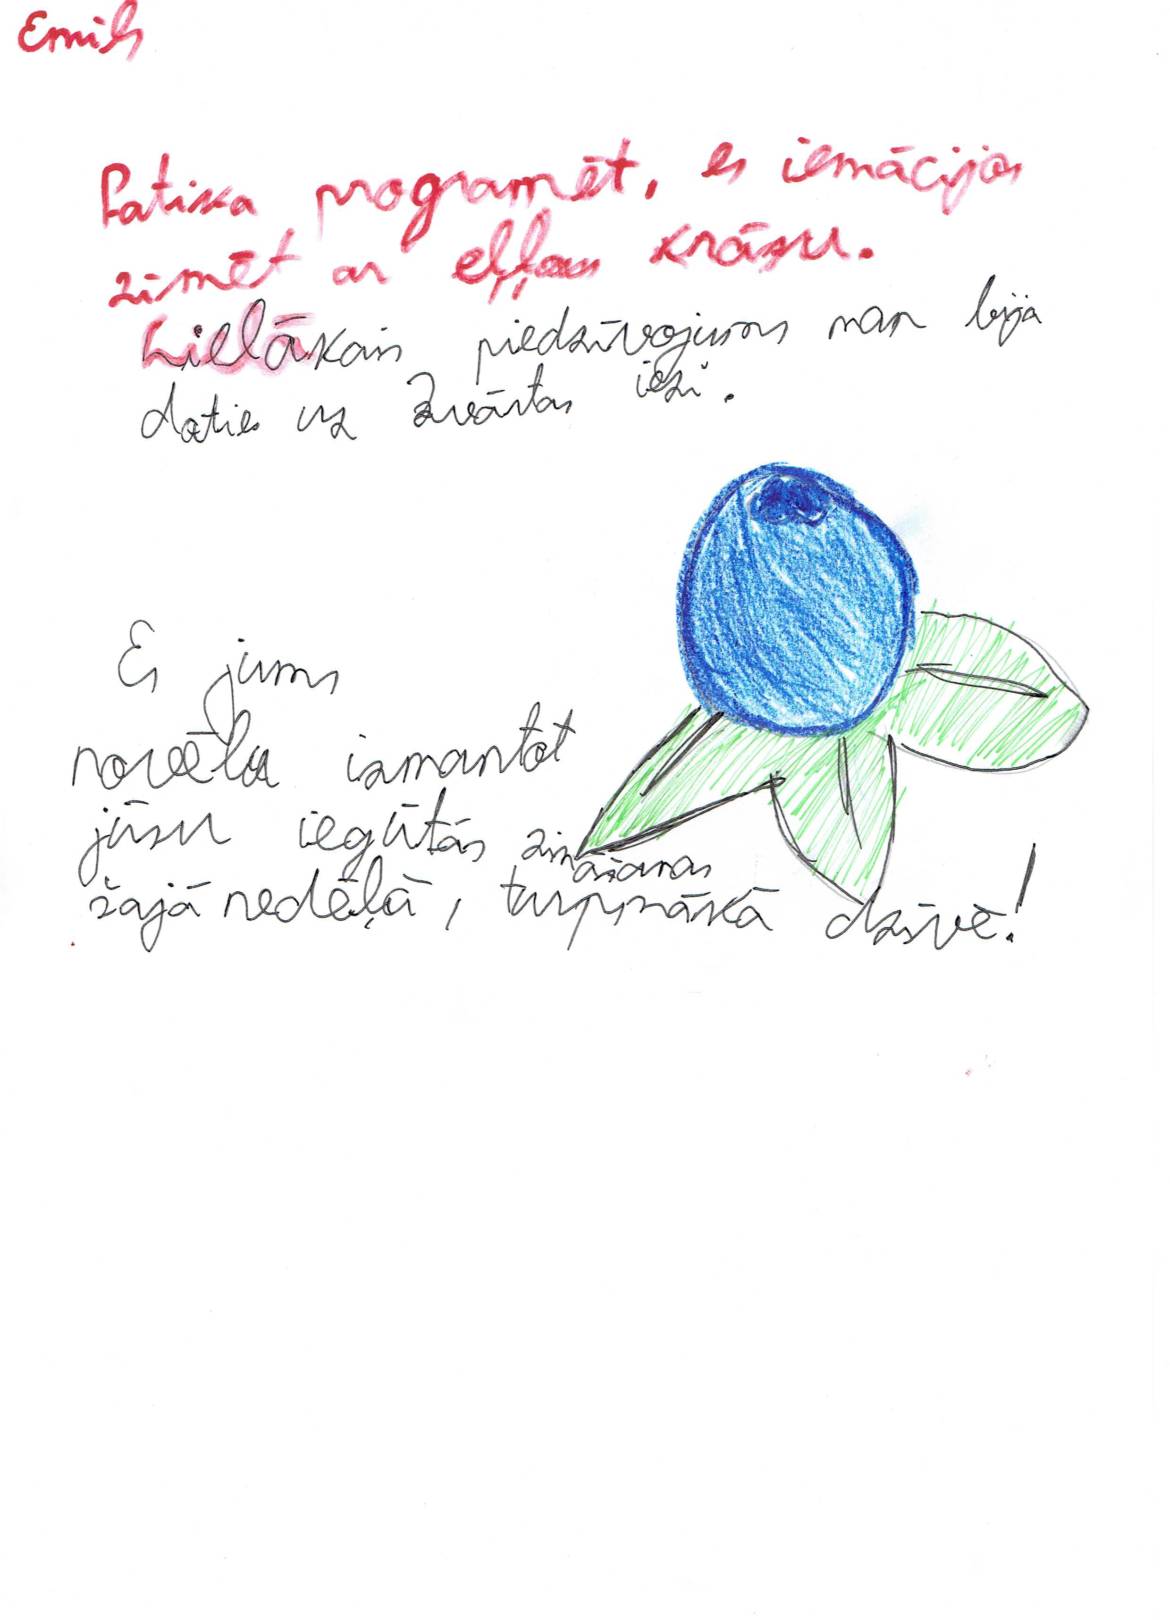 Emils
Patika programēt, es iemācijos
zimēt ar eļļas krāsu.
Lielākais piedzīvojums man bija
doties uz Zvārtas iezi.
Es jums
novēlu izmantot
jūsu iegūtās zināšanas
šajā nedēļā, turpmākā dzīvē!